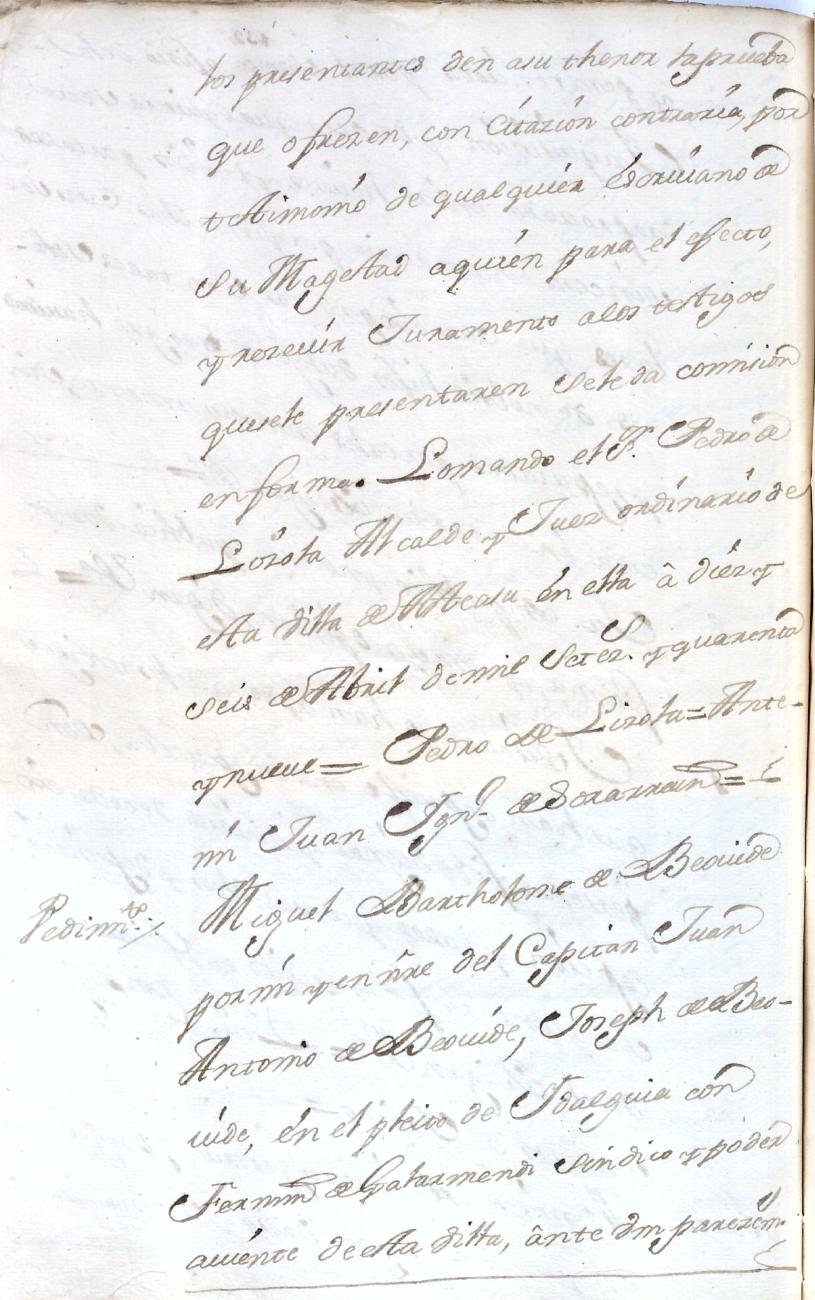 los presentantes den asu thenor la prueba
que ofrezen, con Citazion contraria, por
testimonio de qualquier Escriuano de
Su Magestad aquien para el efecto,
y rezeuir Juramento alos testigos
quesele presentaren sele da comision
en forma. Lomando el Sr. Pedro de
Lizola Alcalde y Juez ordinario de
esta Villa de Alcasu en ella â diez y
seis de Abril de mil setezs. y quarenta
y nueue = Pedro de Lizola = Ante-
mi Juan Ignº. de Dorarrain =
Pedimto. /.
Miguel Bartholome de Beouide
por mi y en nre del Capitan Juan
Antonio de Beouide, Joseph de Beo-
uide, en el pleito de Ydalguia con
Fermin de Galarmendi sindico y poder
auiente de esta Villa, ânte Vm parezem.